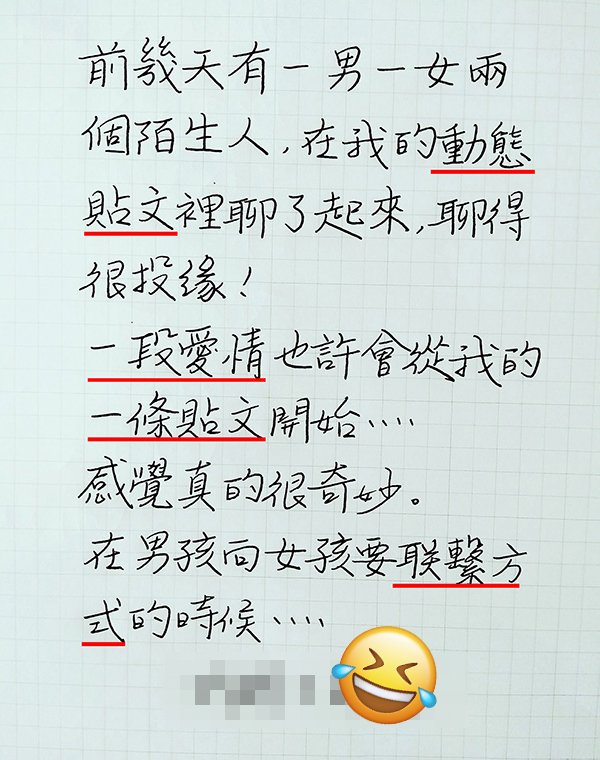 前幾天有一男一女兩
個陌生人,在我的動態
貼文裡聊了起來,聊得
很投缘!
一段愛情也許會從我的
一條貼文開始····
感覺真的很奇妙。
在男孩向女孩要联繫方
式的時候····